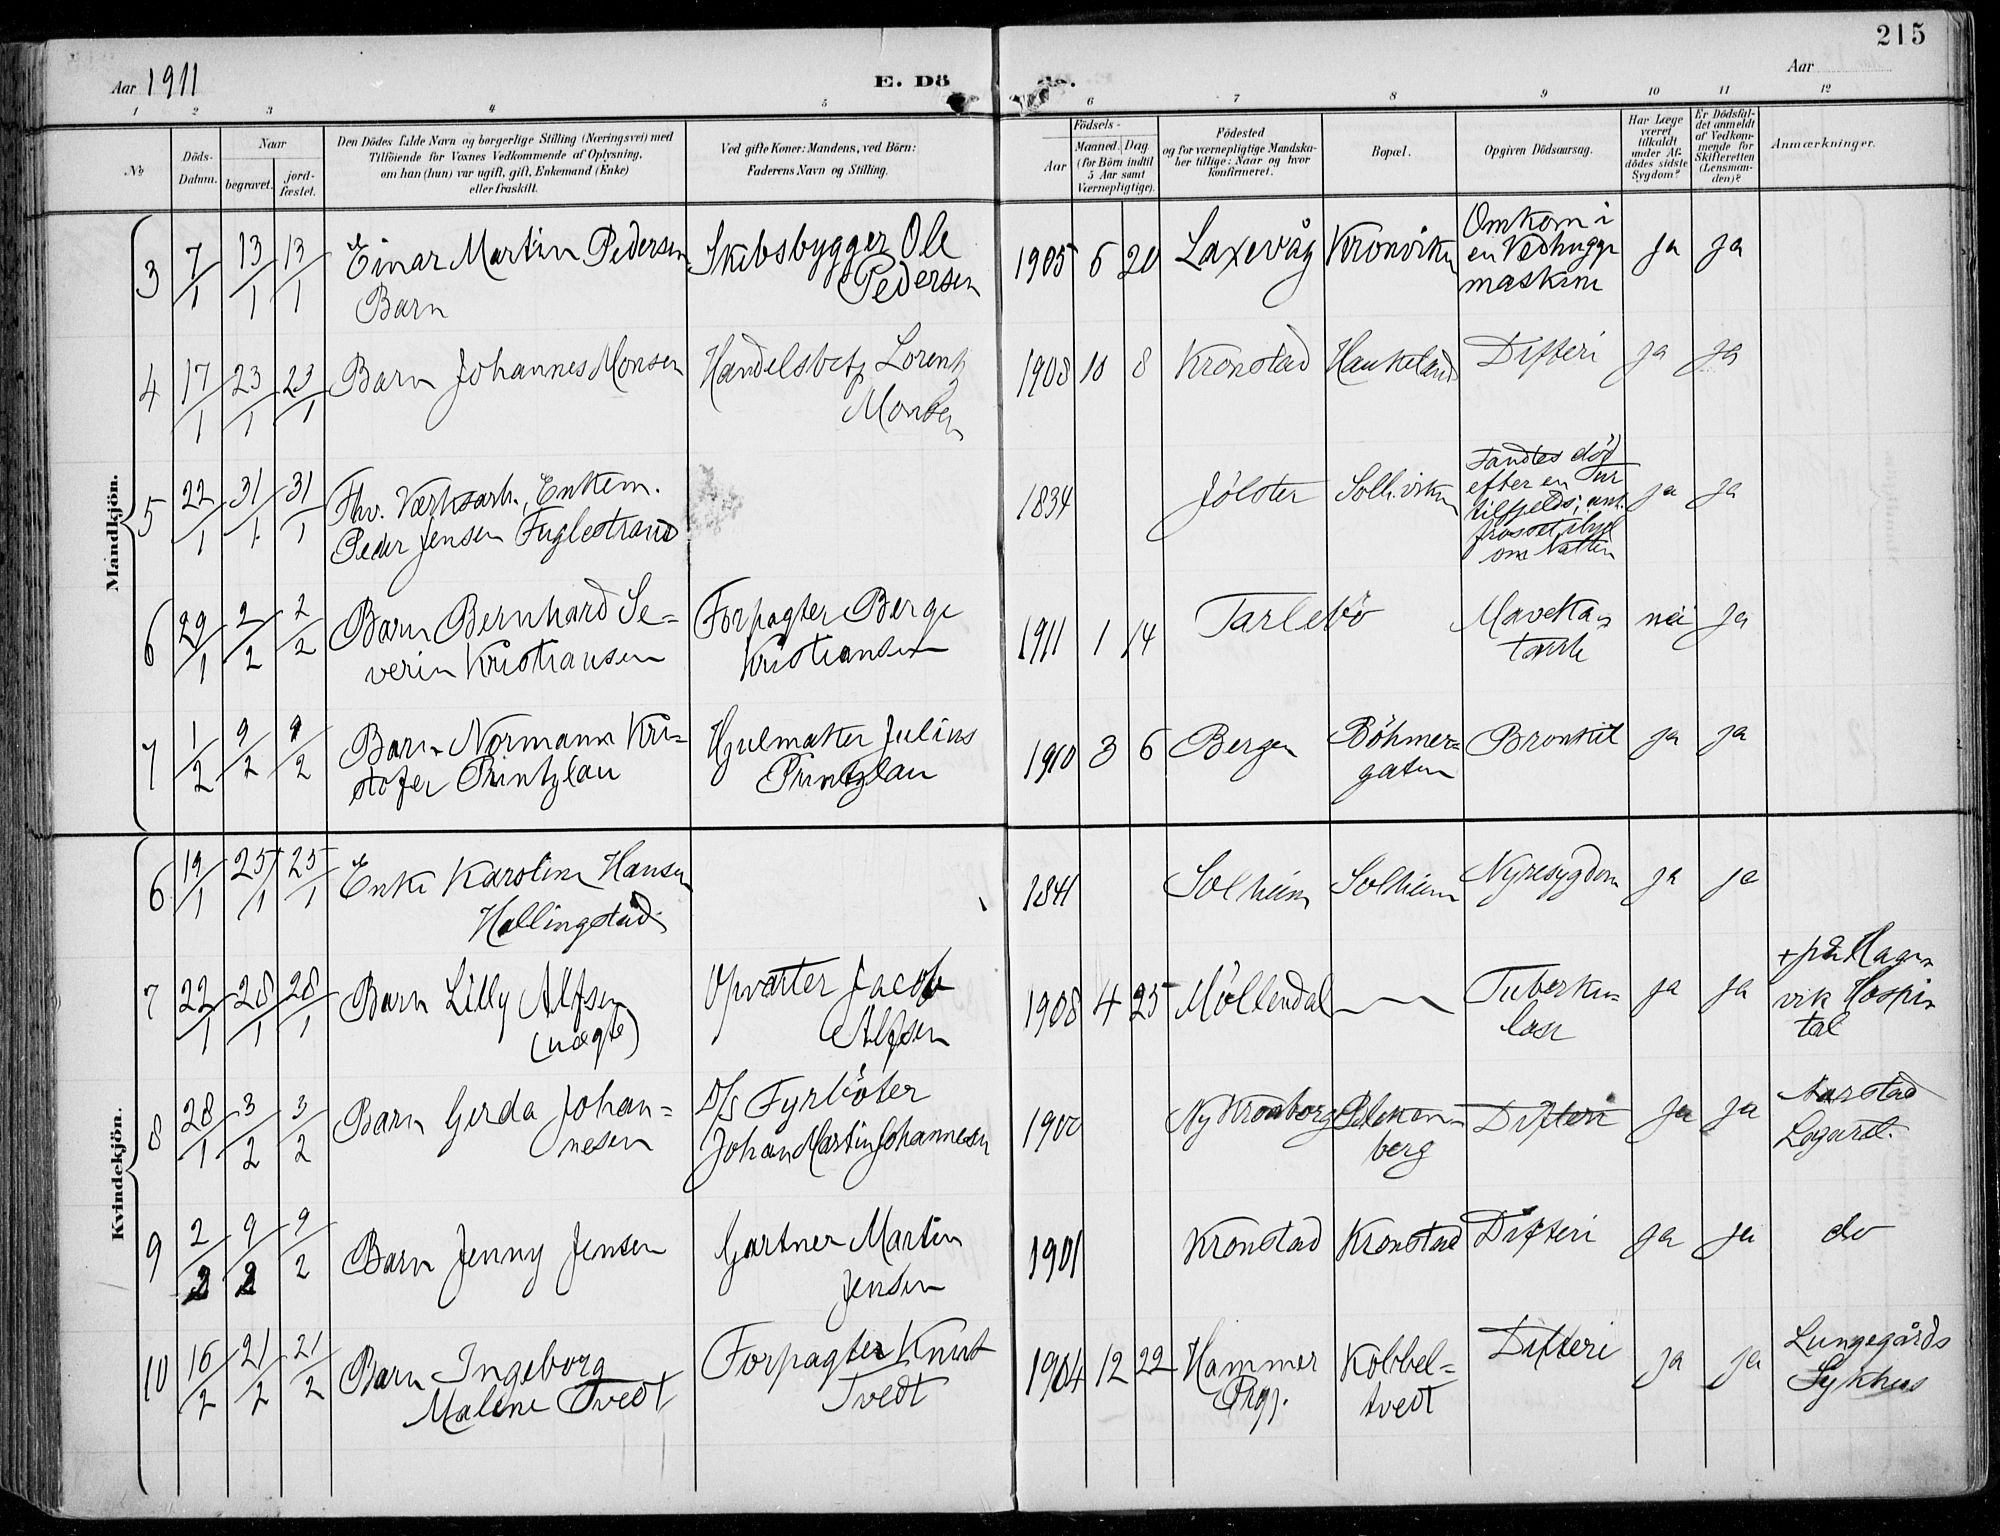 215
Aar 1911
E. Dö
de.
Aar
1 2 3 4 5 6 7 8 9 10 11 12
No
Döds-
Datum.
Naar
begravet.
jord-
fæstet.
Den Dödes fulde Navn og borgerlige Stilling (Næringsvei) med
Tilföiende for Voxnes Vedkommende af Oplysning,
om han (hun) var ugift, gift, Enkemand (Enke)
eller fraskilt.
Ved gifte Koner: Mandens, ved Börn:
Faderens Navn og Stilling.
Födsels-
Aar
Maaned. Dag.
(for Börn indtil
5 Aar samt
Værnepligtige).
Födested
og for værnepligtige Mandska-
ber tillige: Naar og hvor
konfirmeret.
Bopæl.
Opgiven Dödsaarsag.
Har Læge
været
tilkaldt
under Af-
dödes sidste
Sygdom?
Er Dödsfal-
det anmeldt
af Vedkom-
mende for
Skifteretten
(Lensman-
den)?
Anmærkninger.
Mandkjön.
3 7/1 13/1 13/1 Einar Martin Pedersen
Barn
Skibsbygger Ole
Pedersen
1905 6 20 Laxevåg Kronviken
Omkom i
en Vedhugge
maskine
ja ja
4 17/1 23/1 23/1 Barn Johannes Monsen
Handelsbetj. Lorentz
Monsen
1908 10 8 Kronstad Haukeland Difteri ja ja
5 22/1 31/1 31/1 Fhv. Værksarb., Enkem.
Peder Jensen Fuglestrand
1834 Jölster Solh.viken
Fandtes död
efter en Tur
tilfjelds; ant.
frosset ihjel
om Natten
ja ja
6 29/1 2/2 2/2 Barn Bernhard Se-
verin Kristiansen
Forpagter Berge
Kristiansen
1911 1 14 Tarlebö
Maveka-
tarrh
nei ja
7 1/2 9/2 9/2 Barn Normann Kri-
stofer Printzlau
Hjulmaker Julius
Printzlau
1910 3 6 Bergen
Böhmer-
gaten
Bronkit ja ja
Kvindekjön.
6 19/1 25/1 25/1 Enke Karoline Hansen
Hallingstad
1841 Solheim Solheim Nyresygdom ja ja
7 22/1 28/1 28/1 Barn Lilly Alfsen
(uægte)
Opvarter Jacob
Alfsen
1908 4 25 Möllendal —
Tuberku-
lose
ja ja
+ på Hagn
vik Hospi-
tal
8 28/1 3/2 3/2 Barn Gerda Johan-
nesen
D/s Fyrböter
Johan Martin Johannesen
1900 Ny Kronborg
berg
Difteri ja ja
Aarstad
Lazaret.
9 2/2 9/2 9/2 Barn Jenny Jensen
Gartner Martin
Jensen
1901 Kronstad Kronstad Difteri ja ja do
10 16/2 21/2 21/2 Barn Ingeborg
Malene Tvedt
Forpagter Knut
Tvedt
1904 12 22 Hammer
Prgj.
Kobbel-
tvedt
Difteri ja ja
Lungegårds
Sykhus